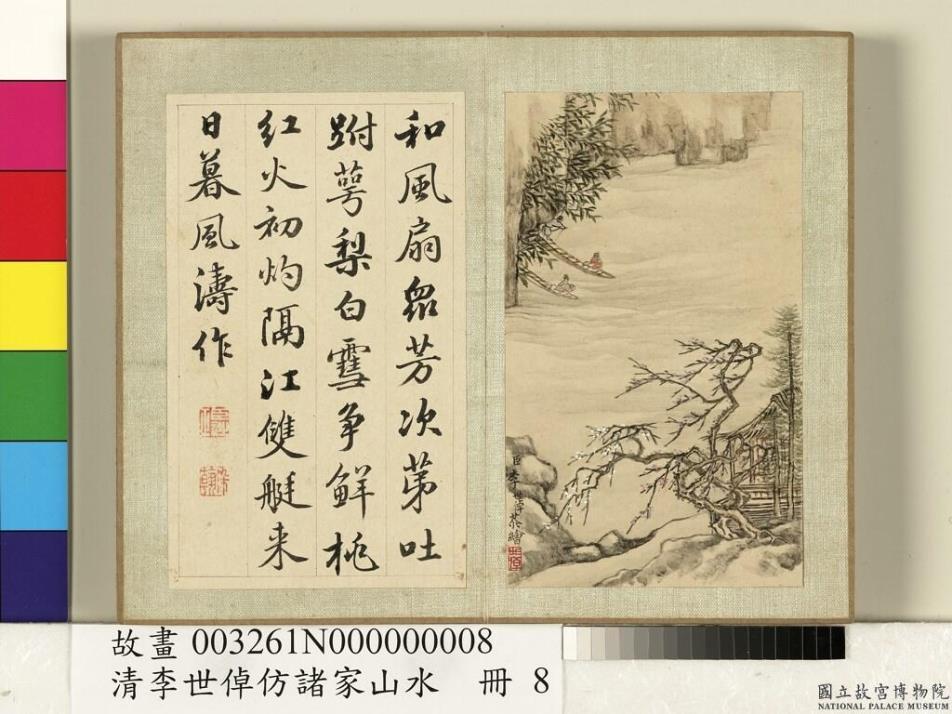 和風扇眾芳次第吐
跗萼梨白雪争鮮桃
紅火初灼隔江雙艇来
日暮風濤作
臣李世倬恭繪
故畫 003261N000000008
清李世倬仿諸家山水 冊 8
國立故宮博物院
NATIONAL PALACE MUSEUM